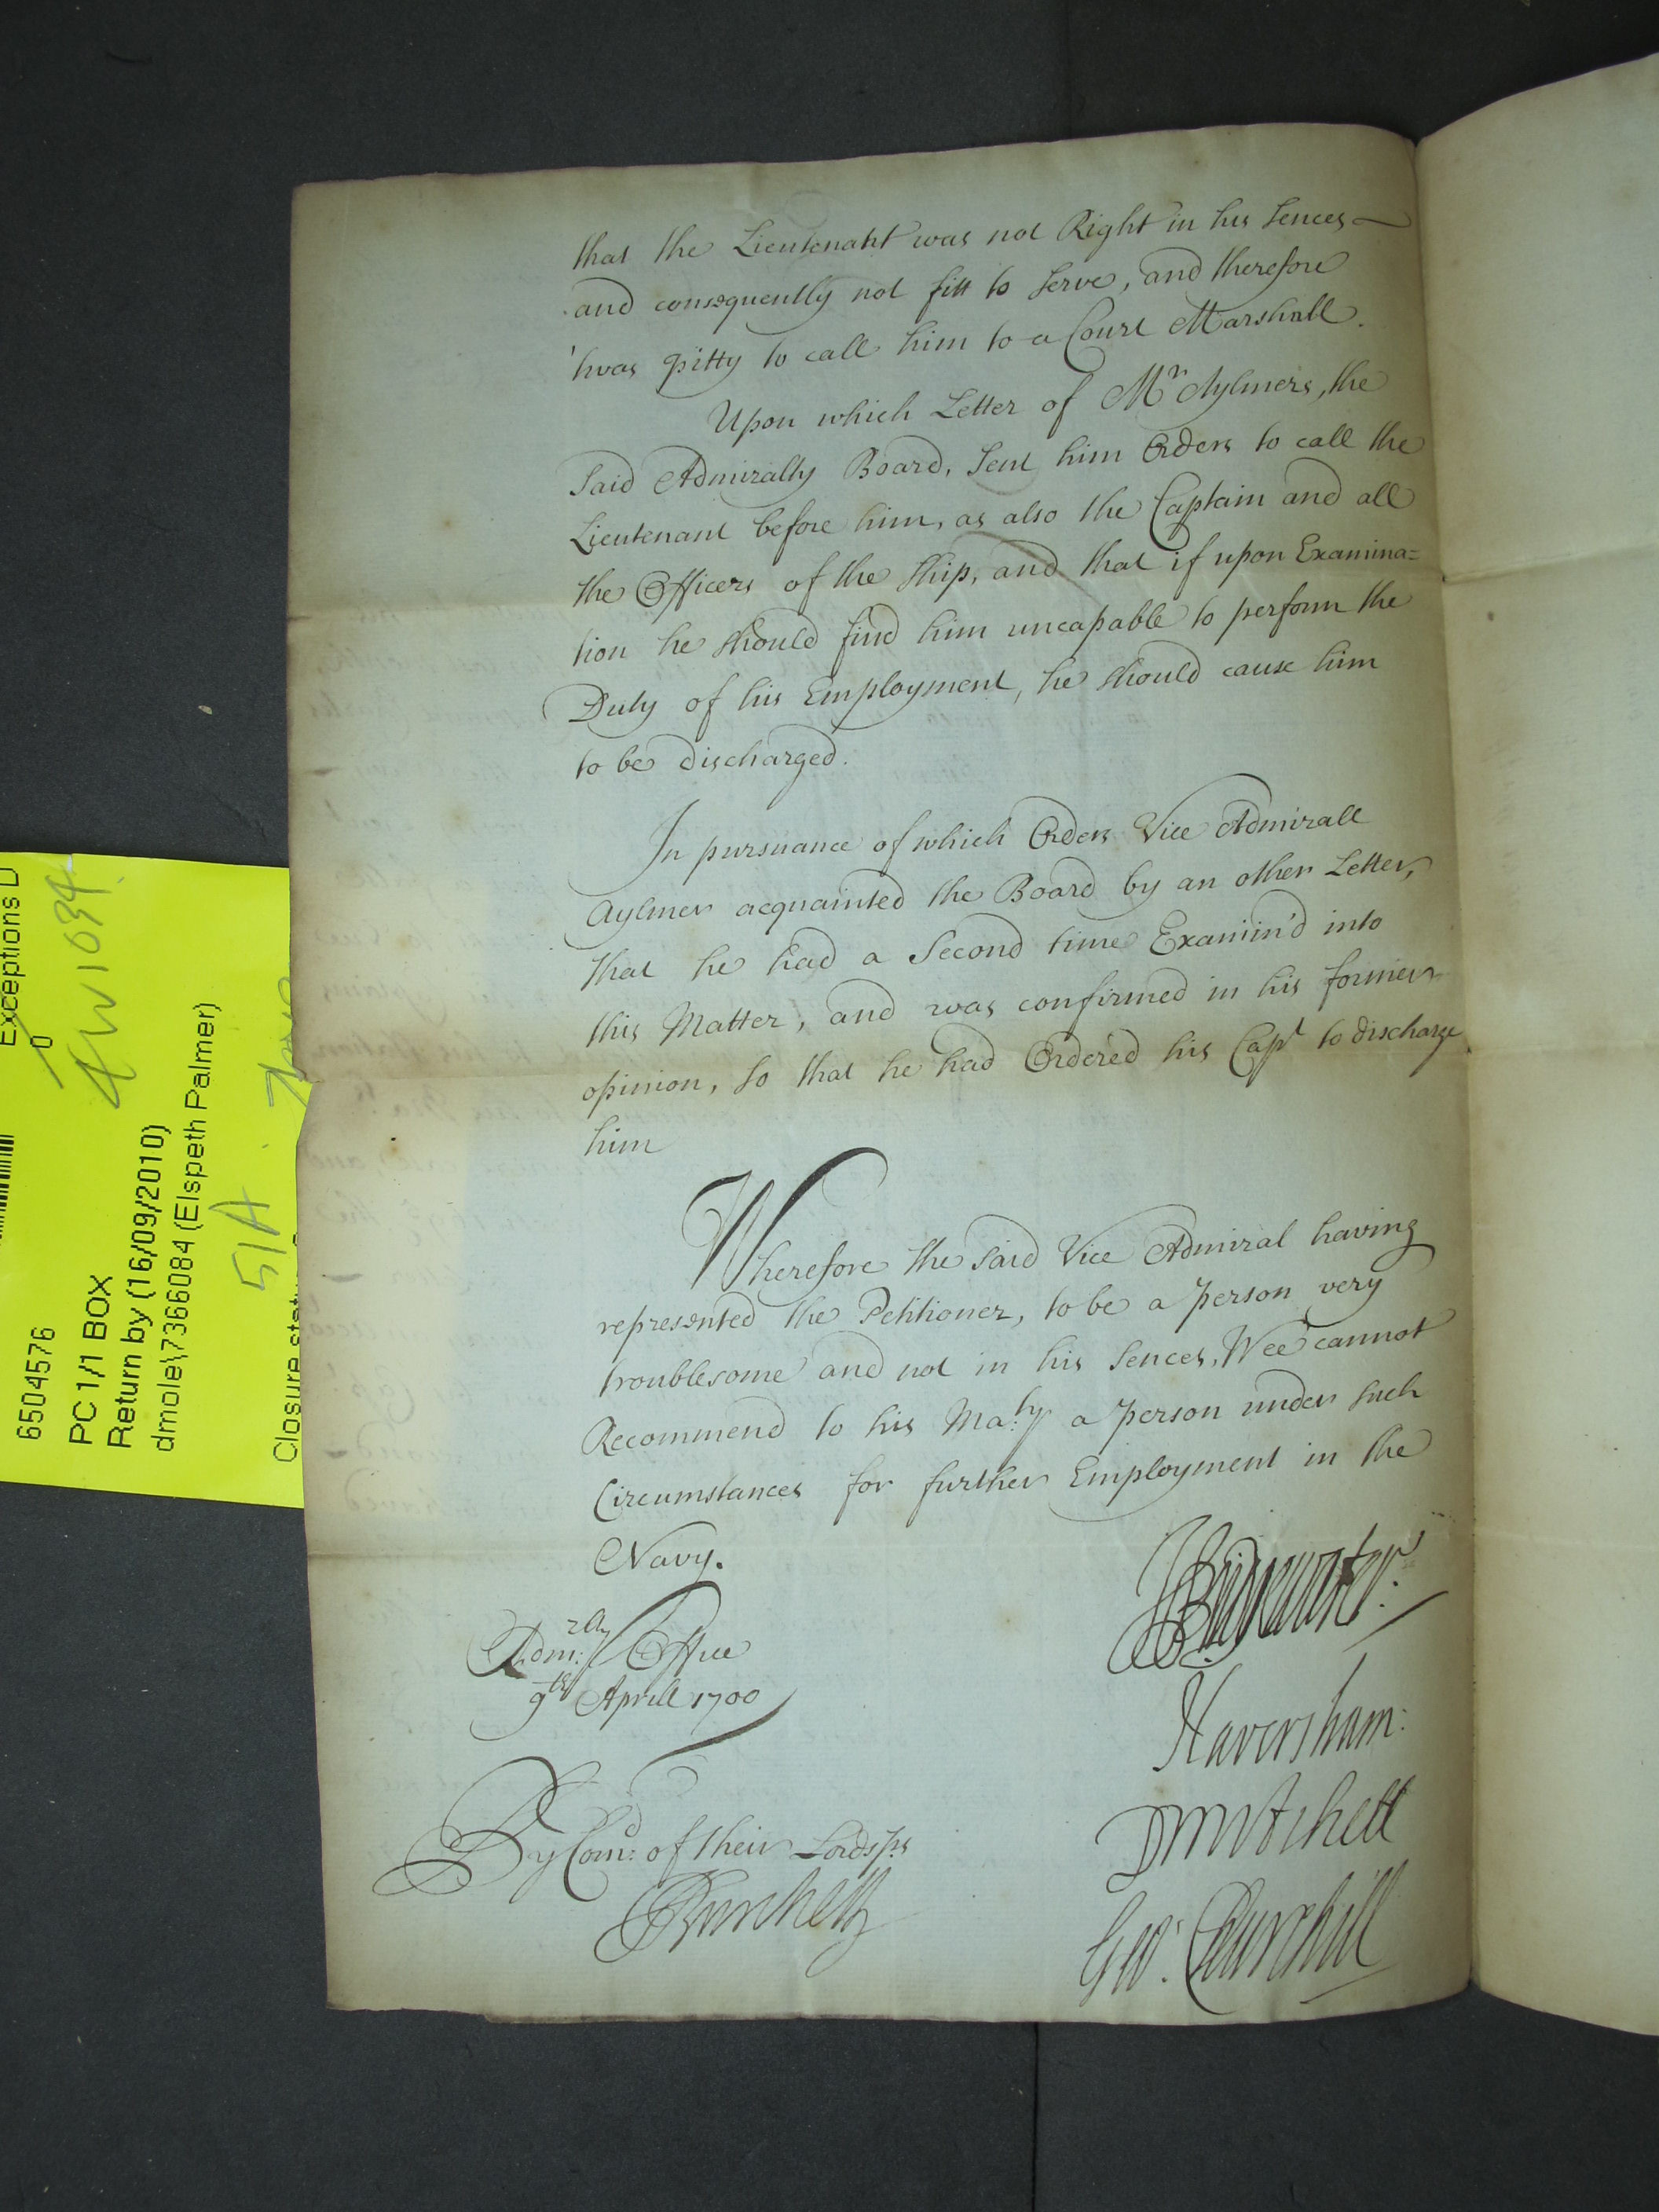 that the Lieutenant was not Right in his Sences
and consequently not fitt to Serve, and therefore
'twas pitty to call him to a Court Marshall.
Upon which Letter of Mr Aylmers, the
Said Admiralty Board, Sent him Orders to call the
Lieutenant before him, as also the Captain and all
the Officers of the Ship, and that if upon Examina=
tion he should find him uncapable to perform the
Duty of his Employment, he should cause him
to be discharged.
In pursuance of which Orders Vice Admirall
Aylmer acquainted the Board by an other Letter,
that he had a Second time Examin'd into
this Matter, and was confirmed in his former
opinion, So that he had Ordered his Capt to discharge
him
Wherefore the said Vice Admiral having
represented the Petitioner, to be a Person very
troublesome and not in his Sences, Wee cannot
Recommend to his Ma:ty a Person under such
Circumstances for further Employment in the
Navy.
Adm:rlty Office
9th Aprill 1700
By Com:d of their Lordsps
J Burchett
J Bridgewater.
Haversham:
D Mitchell
Geo: Churchill
Exceptions
0
AW 1034
6504576
PC 1/1 BOX
Return by (16/09/2010)
dmole\7366084 (Elspeth Palmer)
51A
Closure